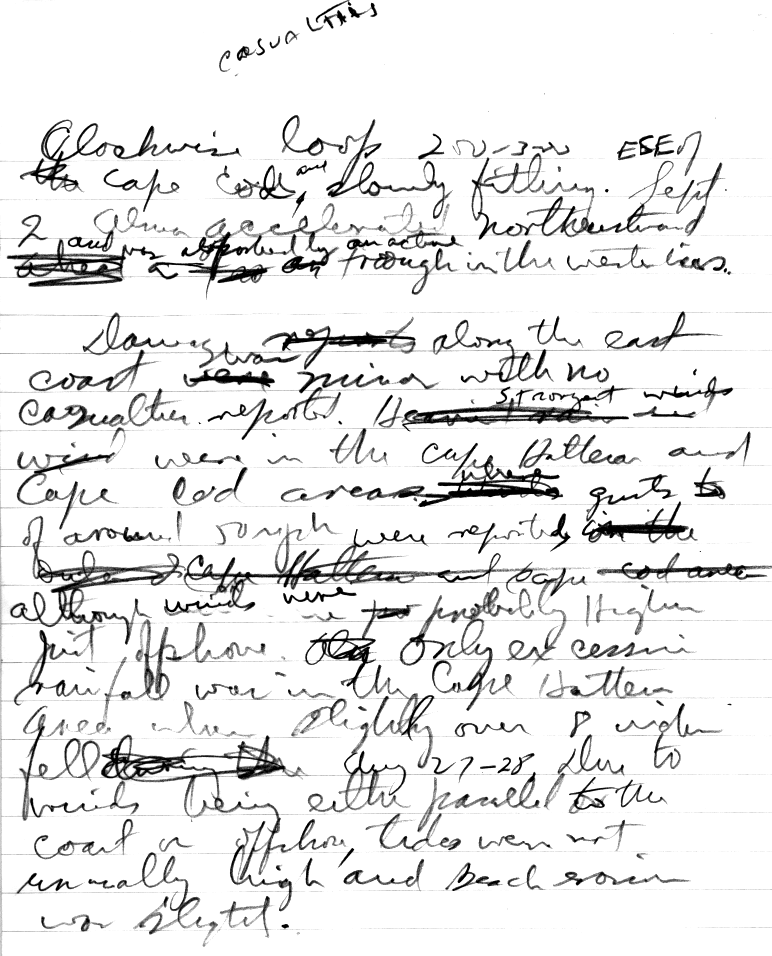 CASUALTIES
Clockwise loop 200-300 ESE of
Cape Cod, and slowly filling. Sept.
2 Alma accelerated northeastward
and was absorbed by an active
trough in the westerlies.
Damage was along the east
coast minor with no
casualties reported. strongest winds
were in the Cape Hatteras and
Cape Cod areas where gusts
of around mph were reported,
although winds were probably higher
just offshore. Only excessive
rainfall was in the Cape Hatteras
area when slightly over 8 inches
fell Aug 27-28. Due to
winds being either parallel to the
coast or offshore, tides were not
unusually high and beach erosion
was slight.